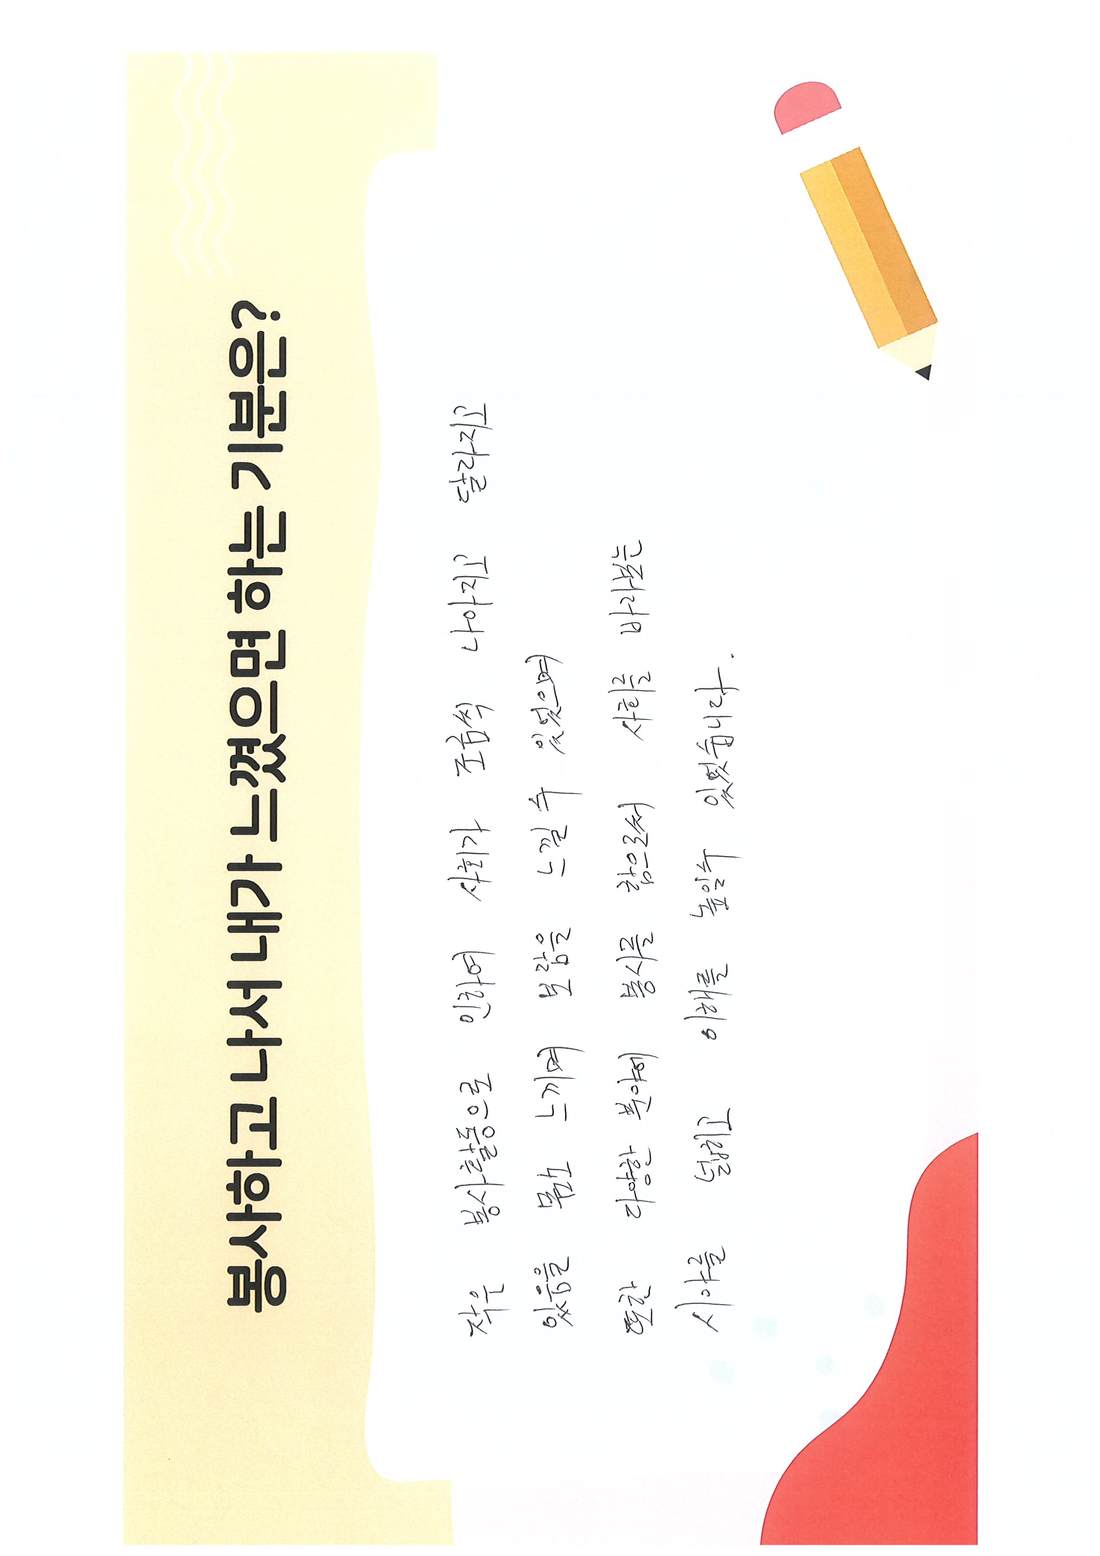 봉사하고 나서 내가 느꼈으면 하는 기분은?
작은 봉사활동으로 인하여 사회가 조금씩 나아지고 달라지고
있음을 몸소 느끼며 보람을 느낄수 있었으며
또한 다양한 분야에 봉사를 함으로써 사회를 바라보는
시야를 넓히고 이해를 높일수 있었습니다.